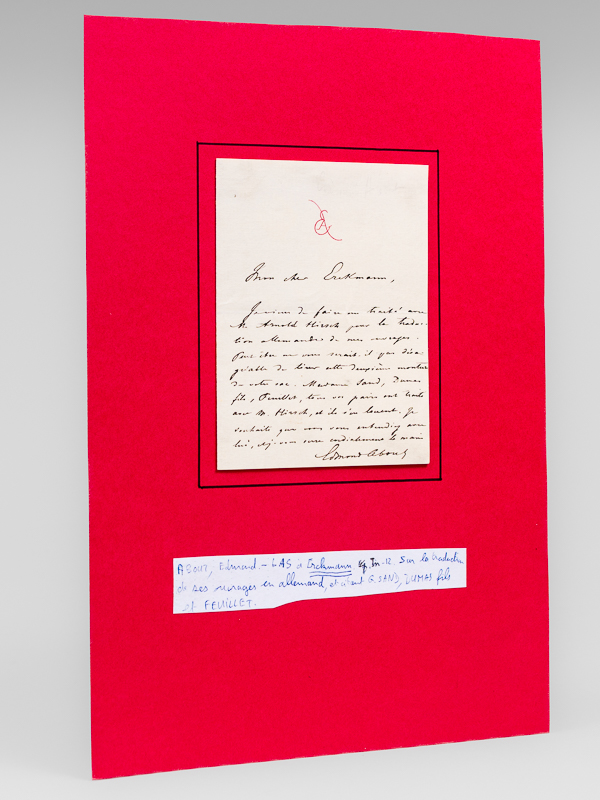 Mon cher Erckmann,
Je viens de faire un traité avec
M. Arnold Hirsch pour la traduc-
tion allemande de mes ouvrages.
Peut être ne vous serait-il pas désa-
gréable de tirer cette deuxième mouture
de votre sac. Madame Sand, Dumas
fils, Feuillet, tous vos pairs ont traité
avec M. Hirsch, et ils s'en louent. Je
souhaite que vous vous entendiez avec
lui, et je vous serre cordialement la main
Edmond About
ABOUT, Edmond - LAS à Erckmann Sur la traduction
de ses ouvrages en allemand, et citant G. SAND, DUMAS fils
et FEUILLET.